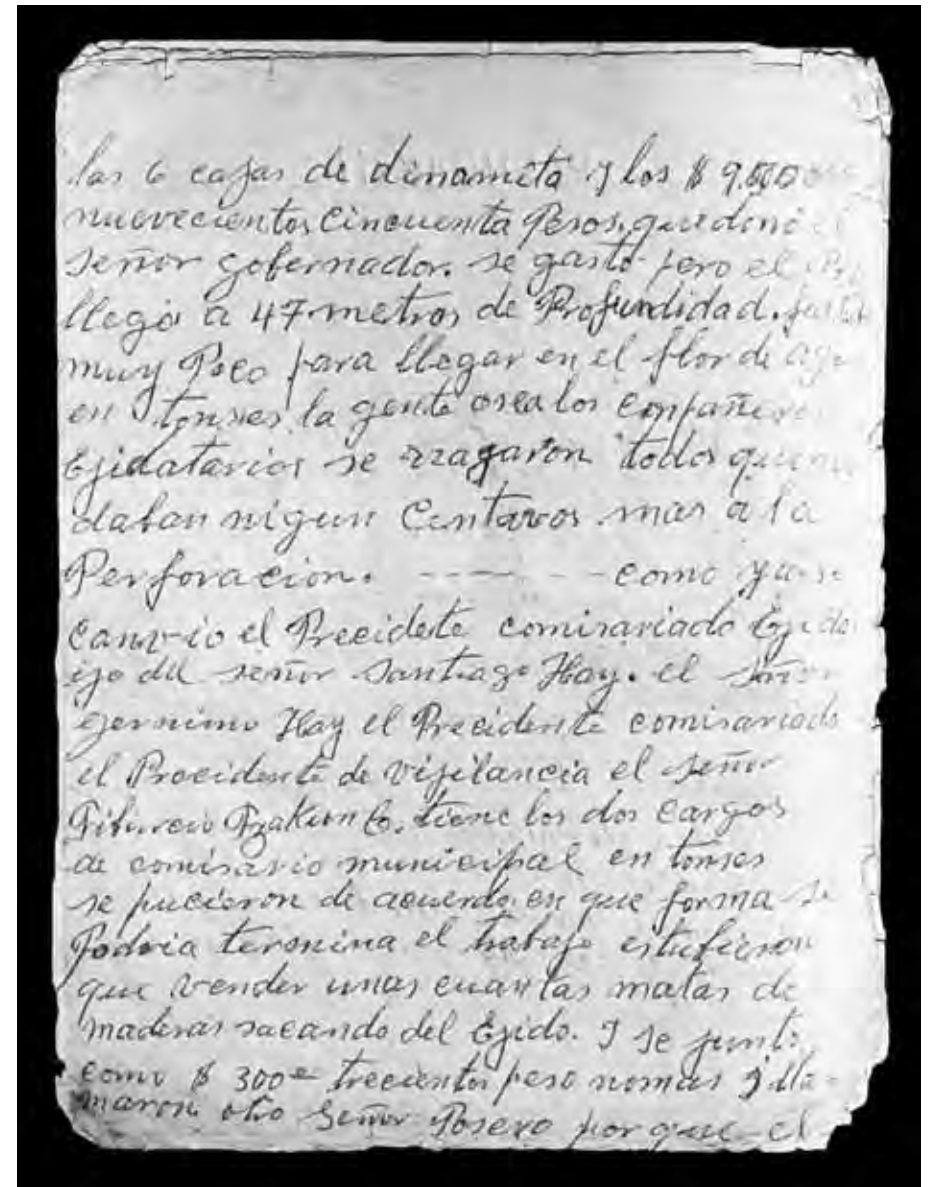 las 6 cajas de dinamita y los $ 9.500
nuevecientos cincuenta Pesos, que donó el
señor gobernador. se gastó pero el
llegó a 47 metros de Profundidad.
muy Poco para llegar en el flor de
en tonses la gente osea los conpañero
Ejidatarios se rragaron todos que no
daban nigun Centavos mas a la
Perforacion. - - - - - - como ya se
canvio el Precidete comisariado
ijo del señor Santiago Hay. el señor
gernimo Hay el Precidente comisariado
el Precidente de vijilancia el señor
Tiburcio tiene los dos cargos
de comisario municipal en tonses
se pucieron de acuerdo en que forma se
Podria termina el trabajo estufieron
que vender unas cuantas matas de
maderas sacando del Ejido. I se junto
como $ 300= trecientos peso nomas y lla-
maron otro Señor Posero porque el